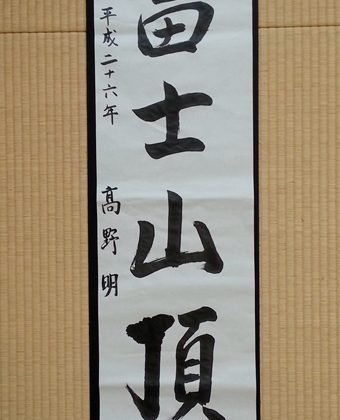 富士山頂
平成二十六年 髙野明